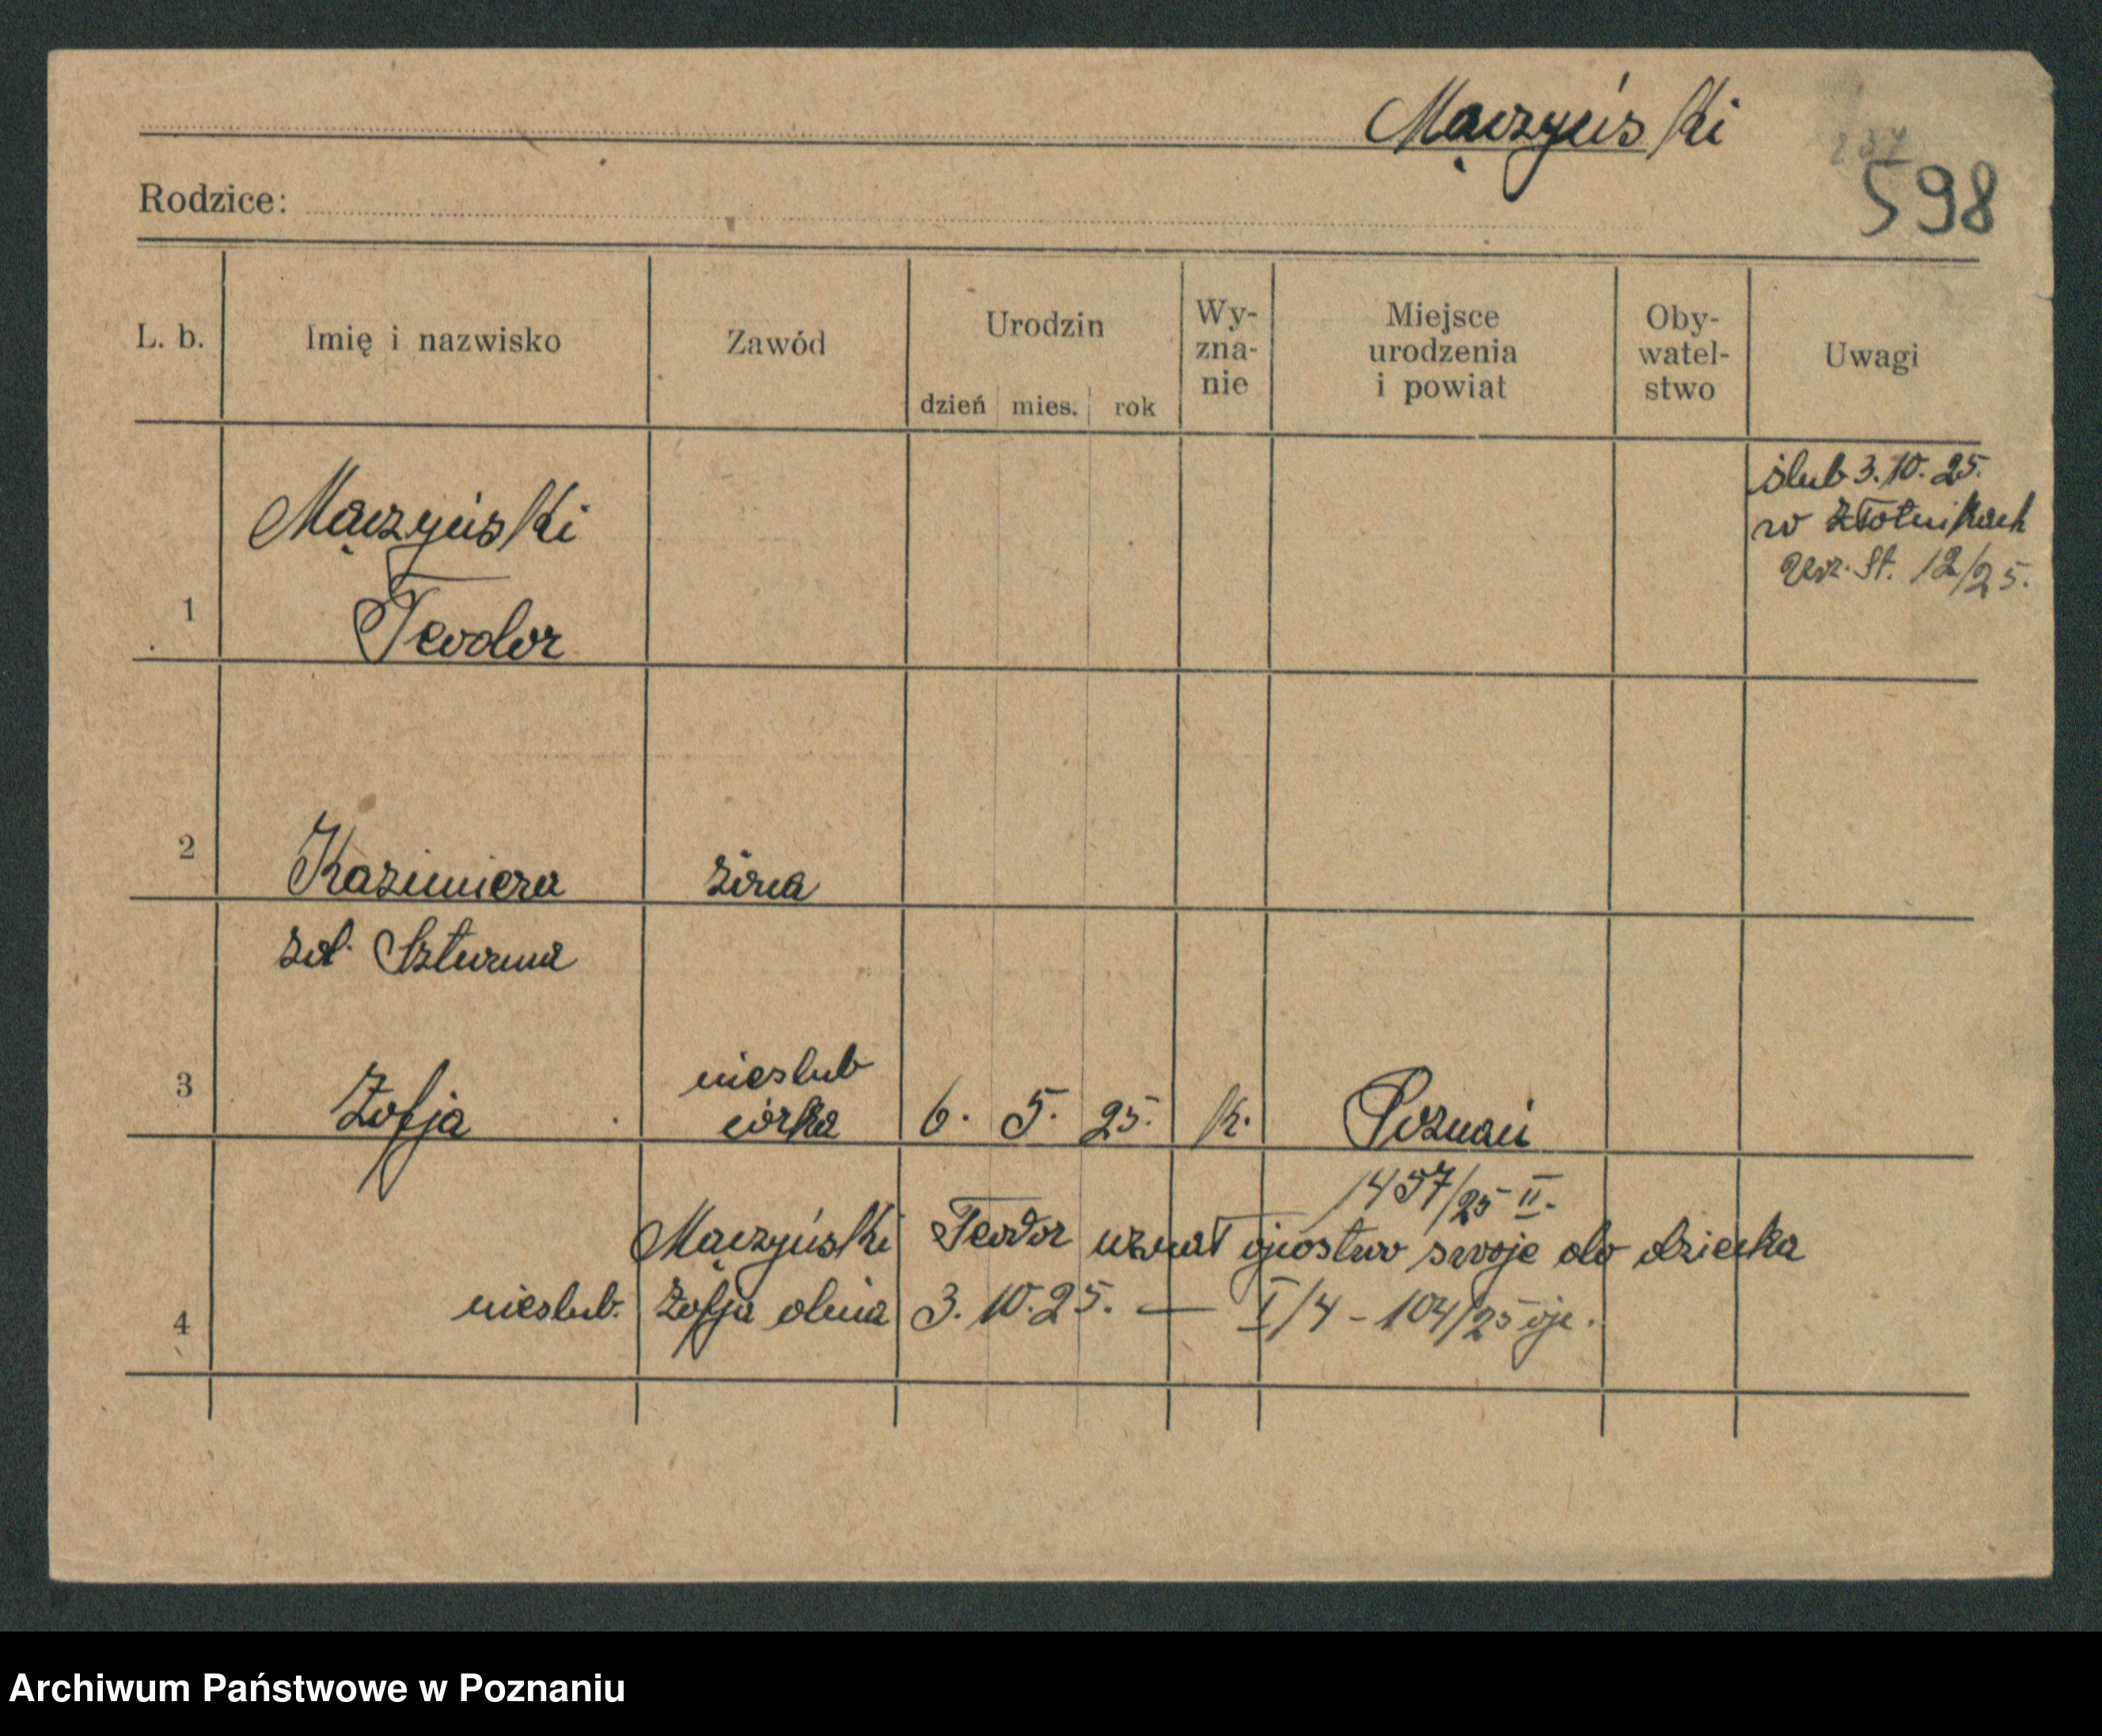 Mączyński
237
598
Rodzice:
L. b. Imię i nazwisko Zawód Urodzin dzień mies. rok Wy-zna-nie Miejsce urodzenia i powiat Oby-watel-stwo Uwagi
ślub 3. 10. 25.
w Złotnikach
Urz. St. 12/25.
Mączyński
1 Teodor
2 Kazimiera żona
zd. Szturma
nieslub
3 Zofja córka 6. 5. 25. k. Poznań
1457/25 II.
Mączyński Teodor uznał ojcostwo swoje do dziecka
4 nieslub. Zofja dnia 3. 10. 25. — I/4 - 104/25 oje.
Archiwum Państwowe w Poznaniu